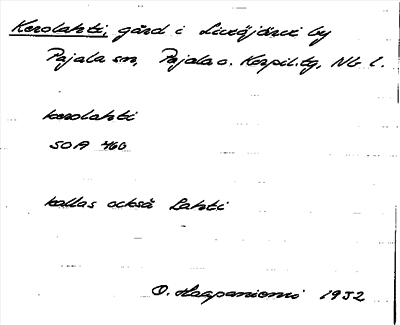 Kerolahti, gård i Liviöjärvi by
Pajala sn, Pajala o. Korpil. tg, Nb l.
kerolahti
SOA 460
kallas också Lahti
O. Haapaniemi 1932